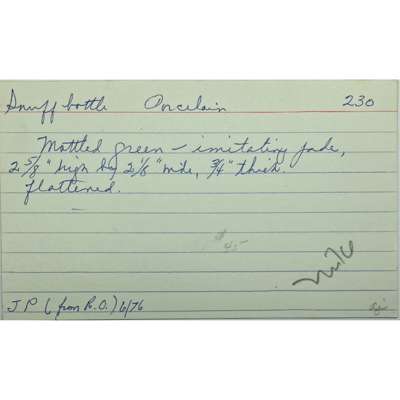 Snuff bottle Porcelain 230
Mottled green – imitating jade,
2 5/8" high by 2 1/8" wide, 3/4" thick.
flattened.
45-
J P (from R.O.) 6/76